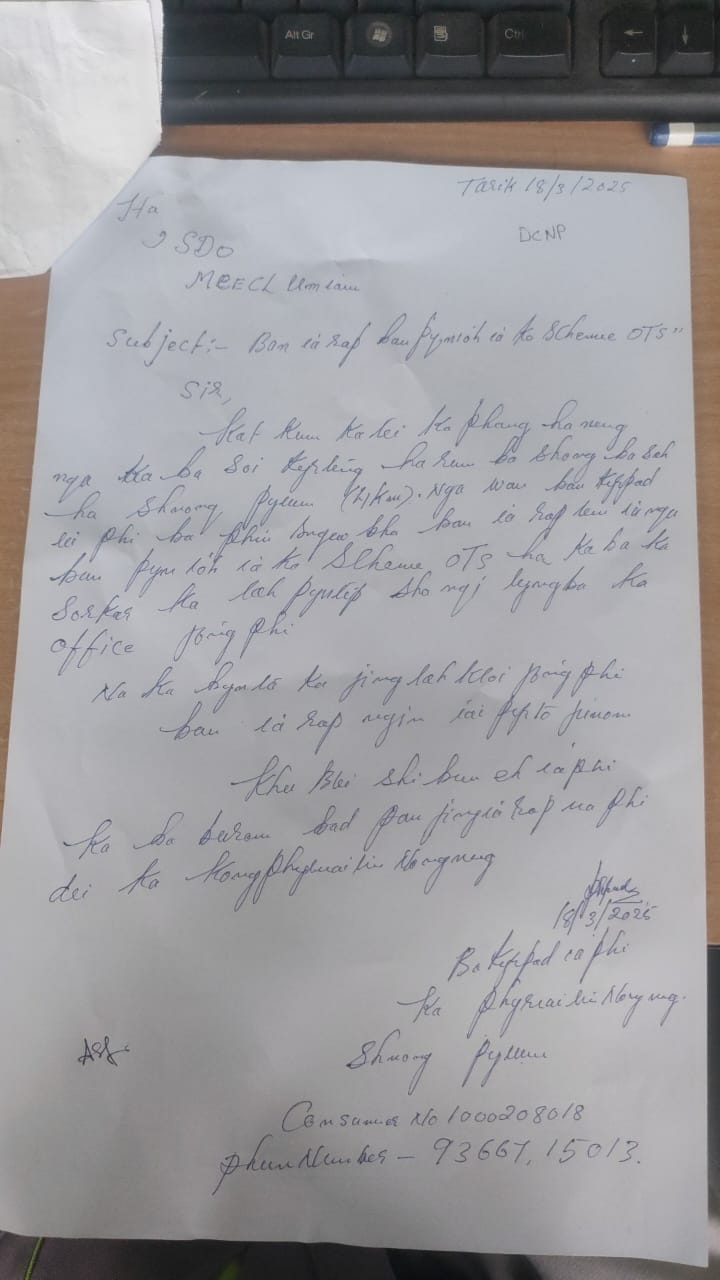 Alt Gr
Ctrl
Tarik 18/3/2025
Ha
I SDO
DCNP
MeECL Umiam
Subject:- Ban ïa rap ban pynïoh ïa ka Scheme OTS"
Sir,
Kat kum ka lei ka phang ha neng
nga ka ba soi kyrteng harum ba shong ba sah
ha Shnong Pyllun (21km). Nga wan ban kyrpad
ïa phi ba phin sngew bha ban ïa rap lem ïa nga
ban pyn ïoh ïa ka Scheme OTS ha ka ba ka
Sorkar ka lah pyntip sha ngi lyngba ka
office jong phi
Na ka bynta ka jing lah kloi jong phi
ban ïa rap ngin ïai pynto jinom
Khu Blei shi bun eh ïa phi
Ka ba burom bad pan jingïarap na phi
dei ka Kong Nongneng
18/3/2025
Ba kyrpad ïa phi
Ka Nongneng.
Shnong Pyllun
Consumer No 1000208018
Phun Number – 93667,15013.